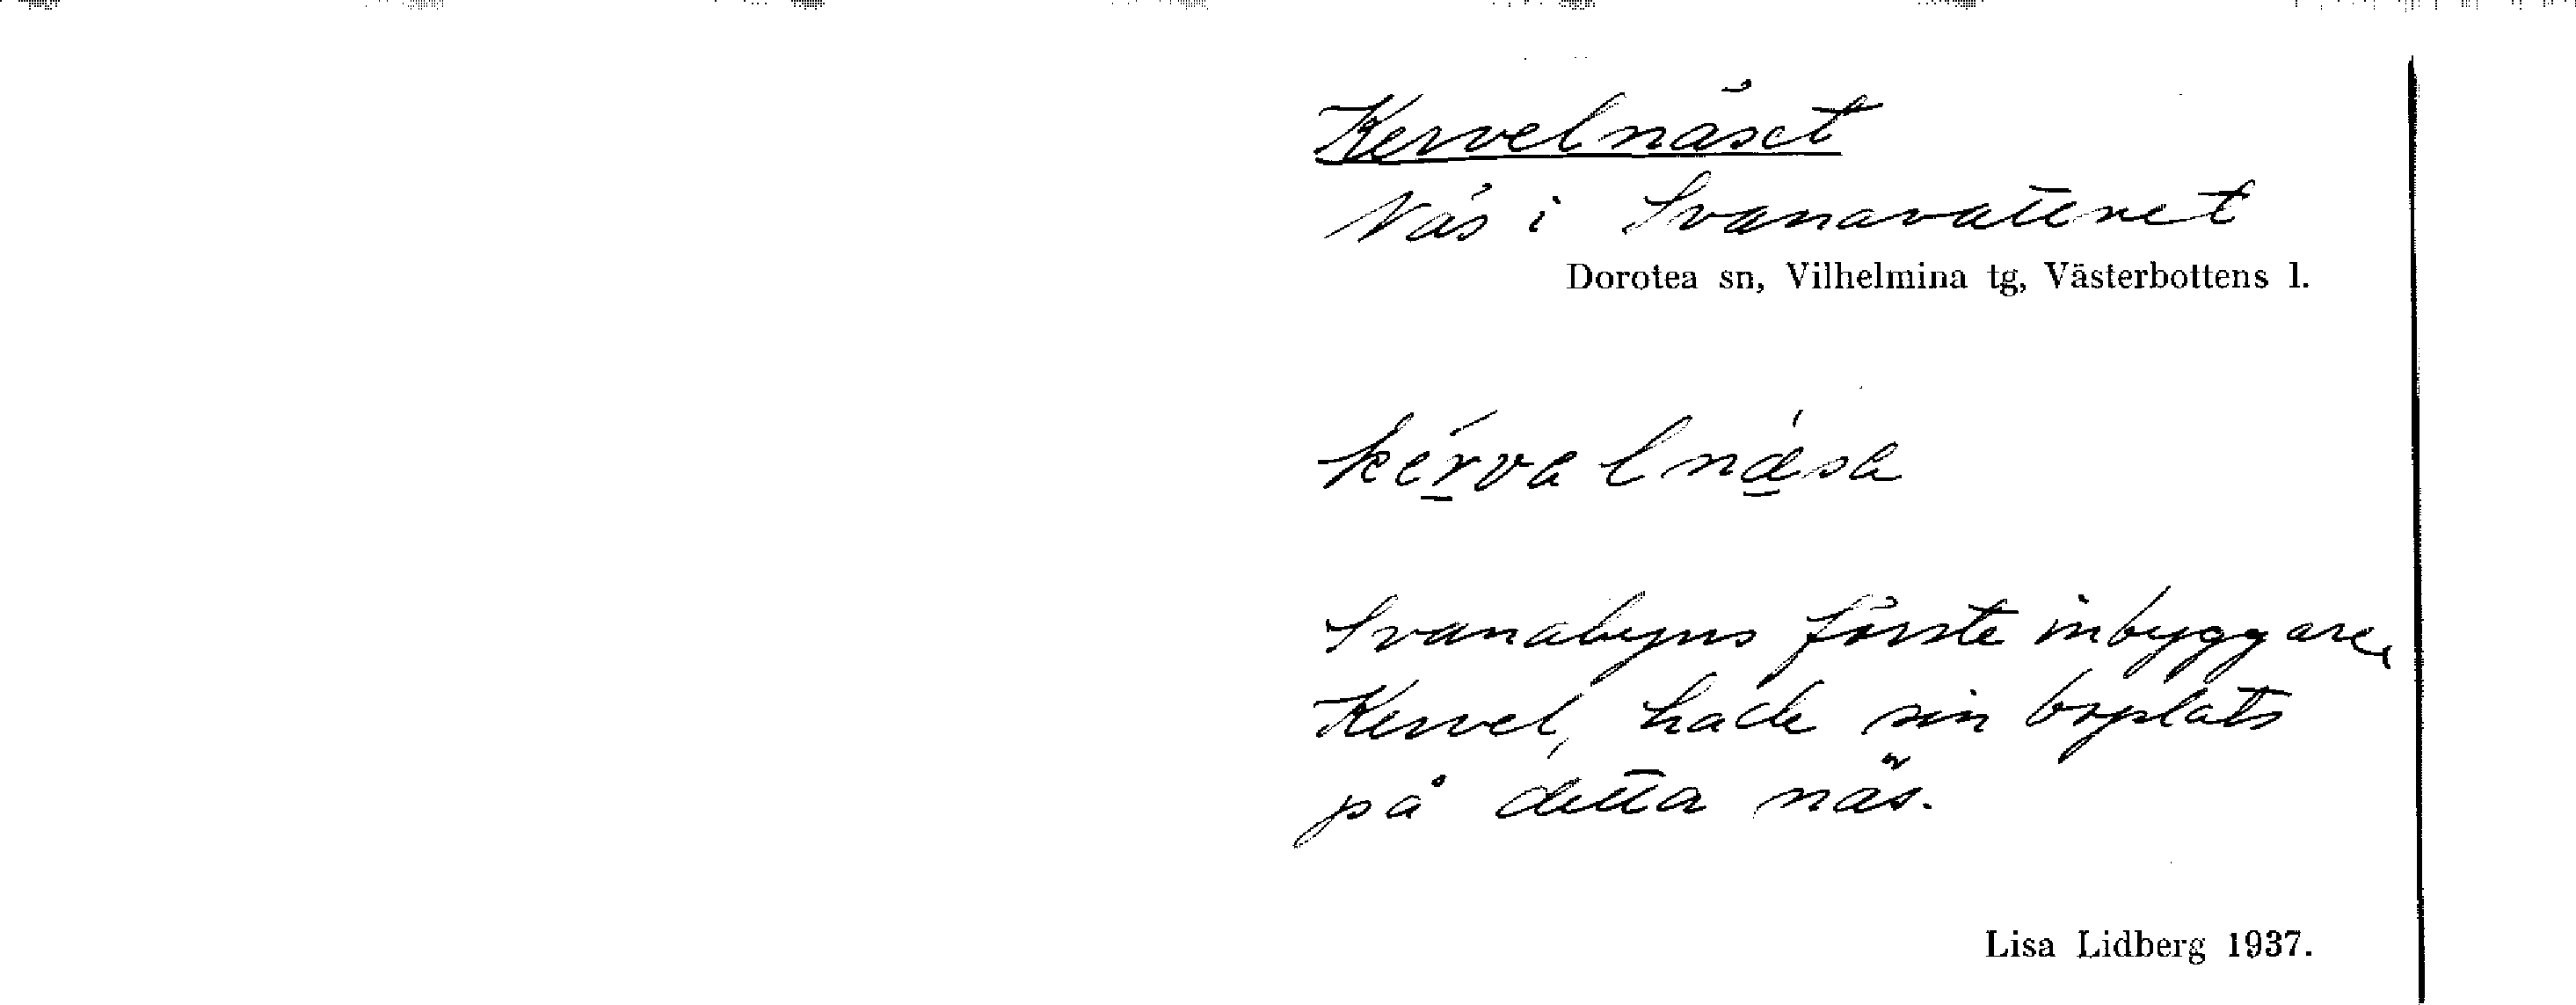 Kervelnäset
Näs i Svanavattnet
Dorotea sn, Vilhelmina tg, Västerbottens l.
Svanabyns förste inbyggare,
Kervel, hade sin boplats
på detta näs.
Lisa Lidberg 1937.